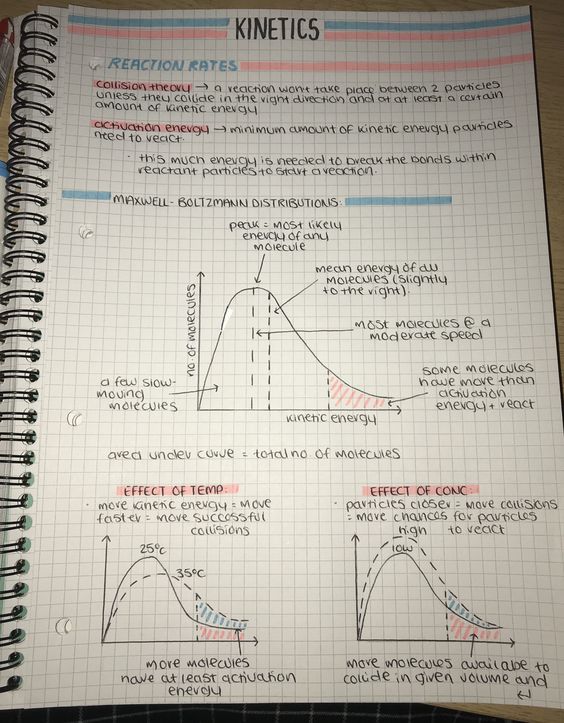 KINETICS
REACTION RATES
collision theory → a reaction wont take place between 2 particles
unless they collide in the right direction and at at least a certain
amount of kinetic energy
activation energy → minimum amount of kinetic energy particles
need to react.
· this much energy is needed to break the bonds within
reactant particles to start a reaction.
MAXWELL-BOLTZMANN DISTRIBUTIONS:
peak = most likely
energy of any
molecule
mean energy of all
molecules (slightly
to the right).
no. of molecules
most molecules @ a
moderate speed
a few slow-
moving
molecules
some molecules
have more than
activation
energy + react
kinetic energy
area under curve = total no of molecules
EFFECT OF TEMP:
· more kinetic energy = move
faster = more successful
collisions
25°C
35°C
more molecules
have at least activation
energy
EFFECT OF CONC:
· particles closer = more collisions
= more chances for particles
to react
high
low
more molecules availabe to
collide in given volume and
↵